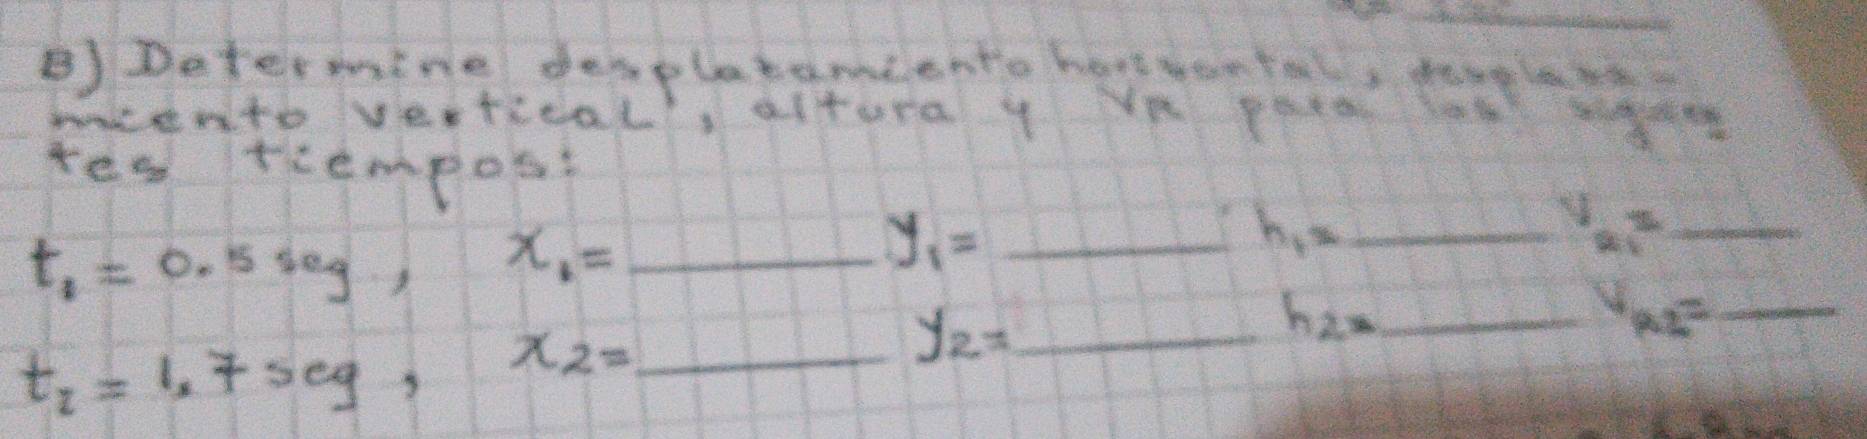 B) Determine desplazamiento horizontal, desplaza-
miento vertical, altura y VR para los siguien
tes tiempos:
t₁ = 0.5 seg, x₁= ______ y₁= ______ h₁= ______ VR₁= ______
t₂ = 1.7 seg, x₂= ______ y₂= ______ h₂= ______ VR₂= ______